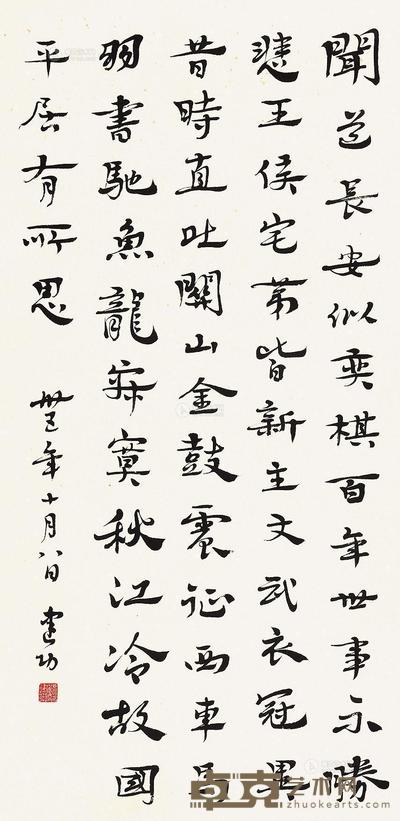 聞道長安似奕棋百年世事不勝
悲王侯宅第皆新主文武衣冠異
昔時直北關山金鼓震征西車馬
羽書馳魚龍寂寞秋江冷故國
平居有所思
卅五年十月八日 建功
卓克艺术网
www.zhuokearts.com